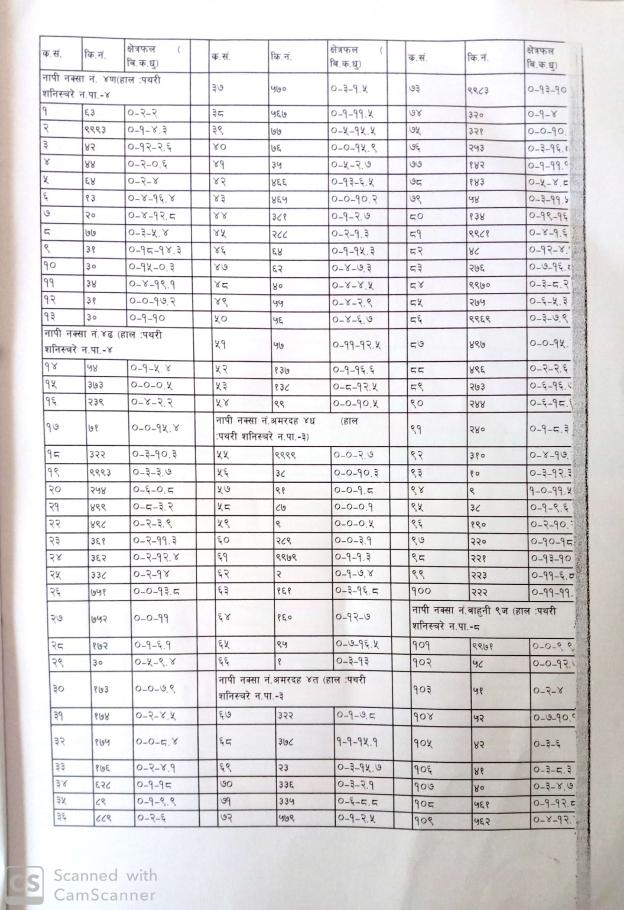 क.सं. कि.नं. क्षेत्रफल ( बि.क.धु) क.सं. कि.नं. क्षेत्रफल ( बि.क.धु) क.सं. कि.नं. क्षेत्रफल बि.क.धु)
नापी नक्सा नं. ४ण(हाल :पथरी शनिस्चरे न.पा.-४ ३७ ५७० ०-३-१.५ ७३ ९९८३ ०-१३-१०
१ ६३ ०-२-२ ३८ ५६७ ०-१-११.५ ७४ ३२० ०-१-४
२ ९९९३ ०-१-४.३ ३९ ७७ ०-५-१५.५ ७५ ३२१ ०-०-१०.
३ ४२ ०-१२-२.६ ४० ७६ ०-०-१५.९ ७६ २५३ ०-३-१६.
४ ४४ ०-२-०.६ ४१ ३५ ०-५-२.७ ७७ १४२ ०-१-११.
५ ६४ ०-२-४ ४२ ४६६ ०-१३-६.५ ७८ १४३ ०-५-४.८
६ १३ ०-४-१६.४ ४३ ४६५ ०-०-१०.२ ७९ ५४ ०-३-११.५
७ २० ०-४-१२.८ ४४ ३८१ ०-१-२.७ ८० १३४ ०-१९-१६
८ ७७ ०-३-५.४ ४५ २८८ ०-२-१.३ ८१ ९९८१ ०-४-१.६
९ ३१ ०-१८-१४.३ ४६ ६४ ०-१-१५.३ ८२ ४८ ०-१२-४.
१० ३० ०-१५-०.३ ४७ ६२ ०-४-७.३ ८३ २७६ ०-७-१६.
११ ३४ ०-४-१९.१ ४८ ४० ०-४-४.५ ८४ ९९७० ०-३-८.२
१२ ३१ ०-०-१७.२ ४९ ५५ ०-४-२.९ ८५ २७५ ०-६-५.३
१३ ३० ०-१-१० ५० ५६ ०-४-६.७ ८६ ९९६९ ०-३-७.९
नापी नक्सा नं.४ढ (हाल :पथरी शनिस्चरे न.पा.-४ ५१ ५७ ०-११-१२.५ ८७ ४९७ ०-०-१५.
१४ ५४ ०-१-५.४ ५२ १३७ ०-१-१६.६ ८८ ४९६ ०-२-२.६
१५ ३७३ ०-०-०.५ ५३ १३८ ०-८-१२.५ ८९ २७३ ०-६-१६.
१६ २३९ ०-४-२.२ ५४ ९९ ०-०-१०.५ ९० २४४ ०-६-१८.
१७ ७१ ०-०-१५.४ नापी नक्सा नं.अमरदह ४ध (हाल :पथरी शनिस्चरे न.पा.-३) ९१ २४० ०-१-८.३
१८ ३२२ ०-३-१०.३ ५५ ९९९९ ०-०-२.७ ९२ ३१० ०-४-१७.
१९ ९९९३ ०-३-३.७ ५६ ३८ ०-०-१०.३ ९३ १० ०-३-१२.३
२० २५४ ०-६-०.८ ५७ ९१ ०-०-१.८ ९४ ९ १-०-११.५
२१ ४९९ ०-८-३.२ ५८ ८७ ०-०-०.१ ९५ ३८ ०-१-९.६
२२ ४९८ ०-२-३.९ ५९ ९ ०-०-०.५ ९६ १९० ०-२-१०.
२३ ३६१ ०-२-११.३ ६० २८९ ०-०-३.१ ९७ २२० ०-१०-१८
२४ ३६२ ०-२-१२.४ ६१ ९९७९ ०-१-१.३ ९८ २२१ ०-१३-१०
२५ ३३८ ०-२-१४ ६२ २ ०-१-७.४ ९९ २२३ ०-११-६.८
२६ ७५१ ०-०-१३.८ ६३ १६१ ०-३-१६.८ १०० २२२ ०-११-११.
२७ ७५२ ०-०-११ ६४ १६० ०-१२-७ नापी नक्सा नं.बाहुनी ९ज (हाल :पथरी शनिस्चरे न.पा.-८
२८ १७२ ०-१-६.१ ६५ ९५ ०-७-१६.५ १०१ ९९७१ ०-०-९.९
२९ ३० ०-५-९.४ ६६ १ ०-३-१३ १०२ ५८ ०-०-१२.
३० १७३ ०-०-७.९ नापी नक्सा नं.अमरदह ४त (हाल :पथरी शनिस्चरे न.पा.-३ १०३ ५१ ०-२-४
३१ १७४ ०-२-४.५ ६७ ३२२ ०-१-७.८ १०४ ५२ ०-७-१०.
३२ १७५ ०-०-८.४ ६८ ३७८ १-१-१५.१ १०५ ४२ ०-३-६
३३ १७६ ०-२-४.१ ६९ २३ ०-३-१५.७ १०६ ४१ ०-३-८.३
३४ ६२८ ०-१-१८ ७० ३३६ ०-३-२.१ १०७ ४० ०-३-४.७
३५ ८९ ०-१-९.९ ७१ ३३५ ०-६-८.८ १०८ ५६१ ०-१-१२.८
३६ ८८९ ०-२-६ ७२ ५७९ ०-१-२.५ १०९ ५६२ ०-४-१२.
CS Scanned with
CamScanner